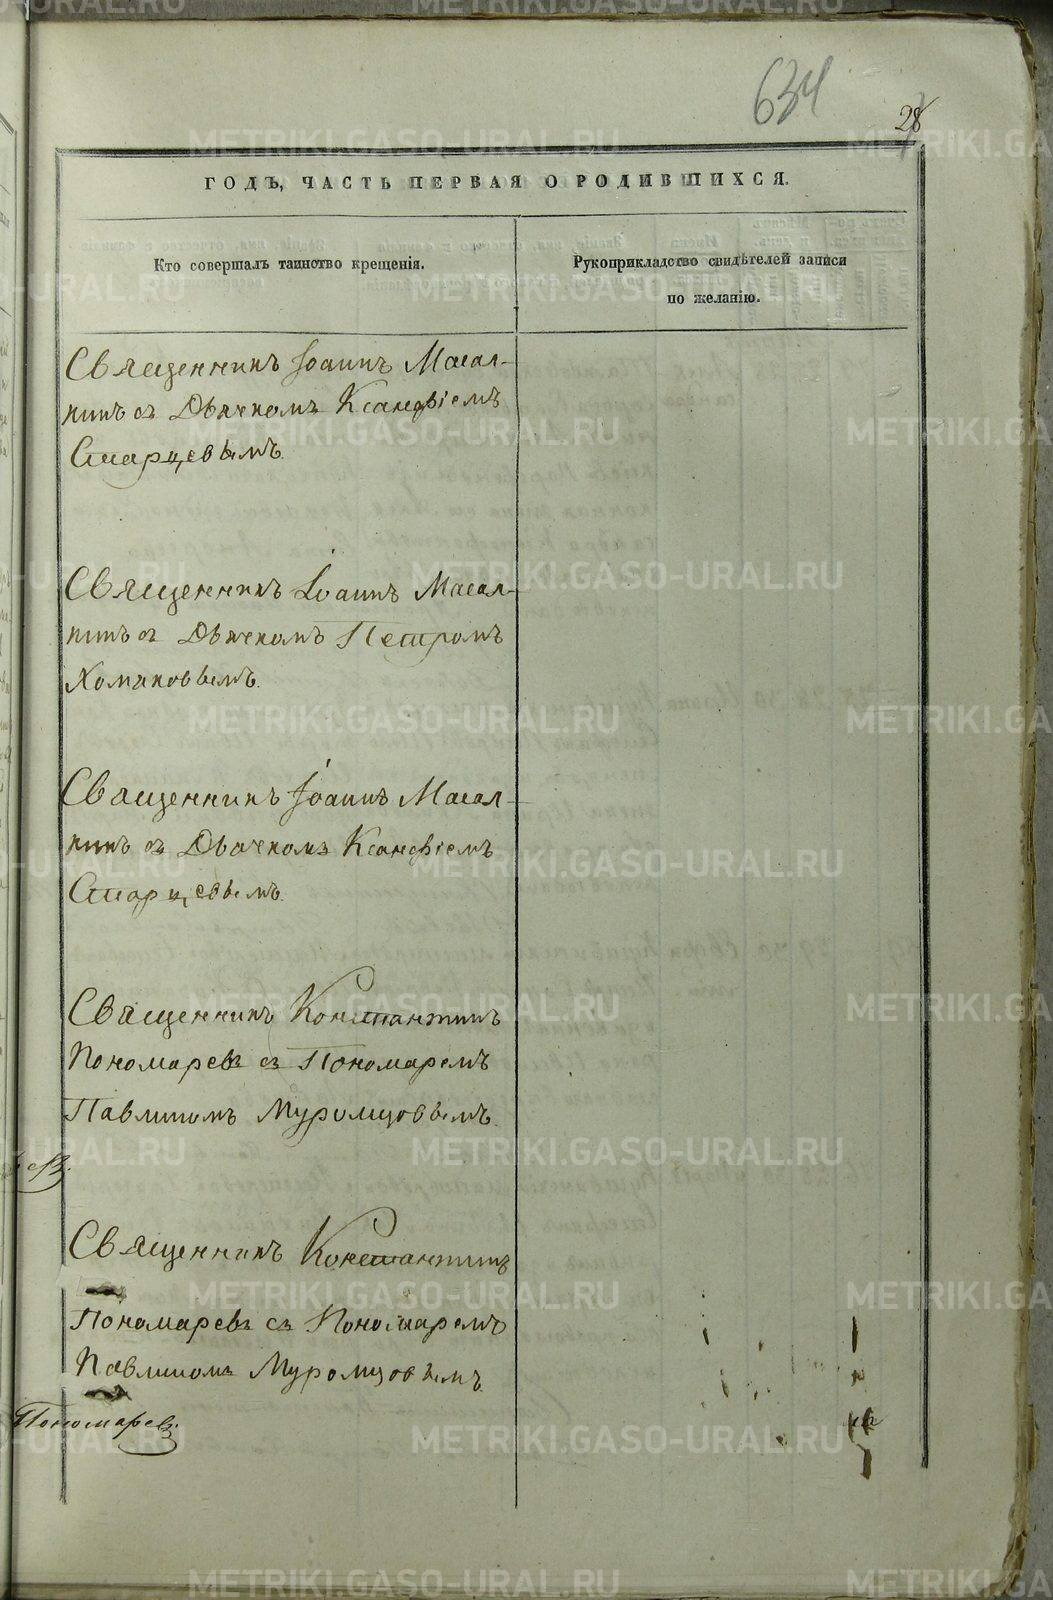 634
28
ГОДЪ, ЧАСТЬ ПЕРВАЯ О РОДИВШИХСЯ.
Кто совершалъ таинство крещенія.
Рукоприкладство свидѣтелей записи
по желанію.
Священникъ Іоаннъ Масал-
кинъ съ Дьячкомъ Ксанѳіемъ
Старцевымъ.
Священникъ Іоаннъ Масал-
кинъ съ Дьячкомъ Петромъ
Хомяковымъ.
Священникъ Іоаннъ Масал-
кинъ съ Дьячкомъ Ксанѳіемъ
Старцевымъ.
Священникъ Константинъ
Пономаревъ съ Пономаремъ
Павлиномъ Муромцовымъ.
Священникъ Константинъ
Пономаревъ съ Пономаремъ
Павлиномъ Муромцовымъ.
Пономаревъ.
METRIKI.GASO-URAL.RU